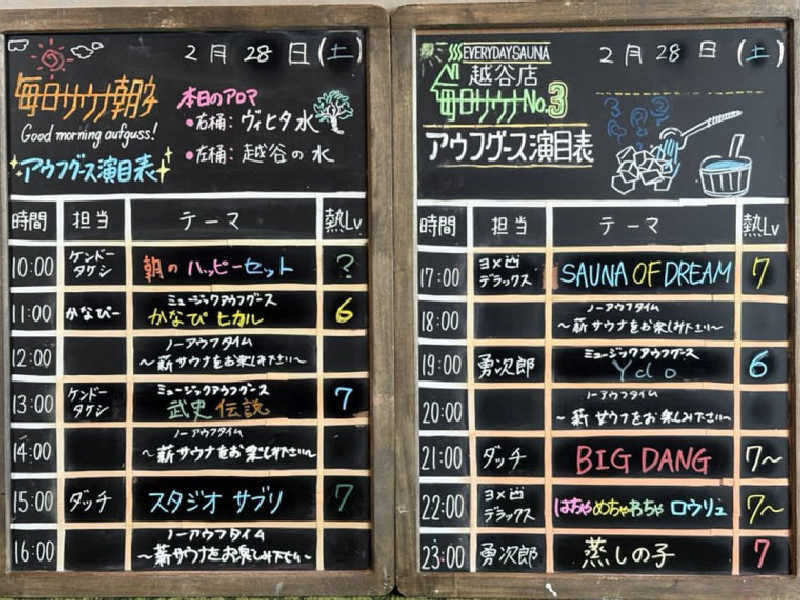 2月 28日(土)
毎日サウナ朝
Good morning aufguss!
アウフグース演目表
本日のアロマ
•右桶: ヴィヒタ水
•左桶: 越谷の水
時間 担当 テーマ 熱Lv
10:00 ケンドータケシ 朝のハッピーセット ?
11:00 かなぴー ミュージックアウフグース
かなぴヒカル 6
12:00 ノーアウフタイム
〜薪サウナをお楽しみ下さい〜
13:00 ケンドータケシ ミュージックアウフグース
武史伝説 7
14:00 ノーアウフタイム
〜薪サウナをお楽しみ下さい〜
15:00 ダッチ スタジオ サブリ 7
16:00 ノーアウフタイム
〜薪サウナをお楽しみ下さい〜
2月 28日(土)
EVERYDAY SAUNA
越谷店
毎日サウナ No.3
アウフグース演目表
時間 担当 テーマ 熱Lv
17:00 デラックス SAUNA OF DREAM 7
18:00 ノーアウフタイム
〜薪サウナをお楽しみ下さい〜
19:00 勇次郎 ミュージックアウフグース
6
20:00 ノーアウフタイム
〜薪サウナをお楽しみ下さい〜
21:00 ダッチ BIG DANG 7〜
22:00 デラックス はちゃめちゃわちゃ ロウリュ 7〜
23:00 勇次郎 蒸しの子 7